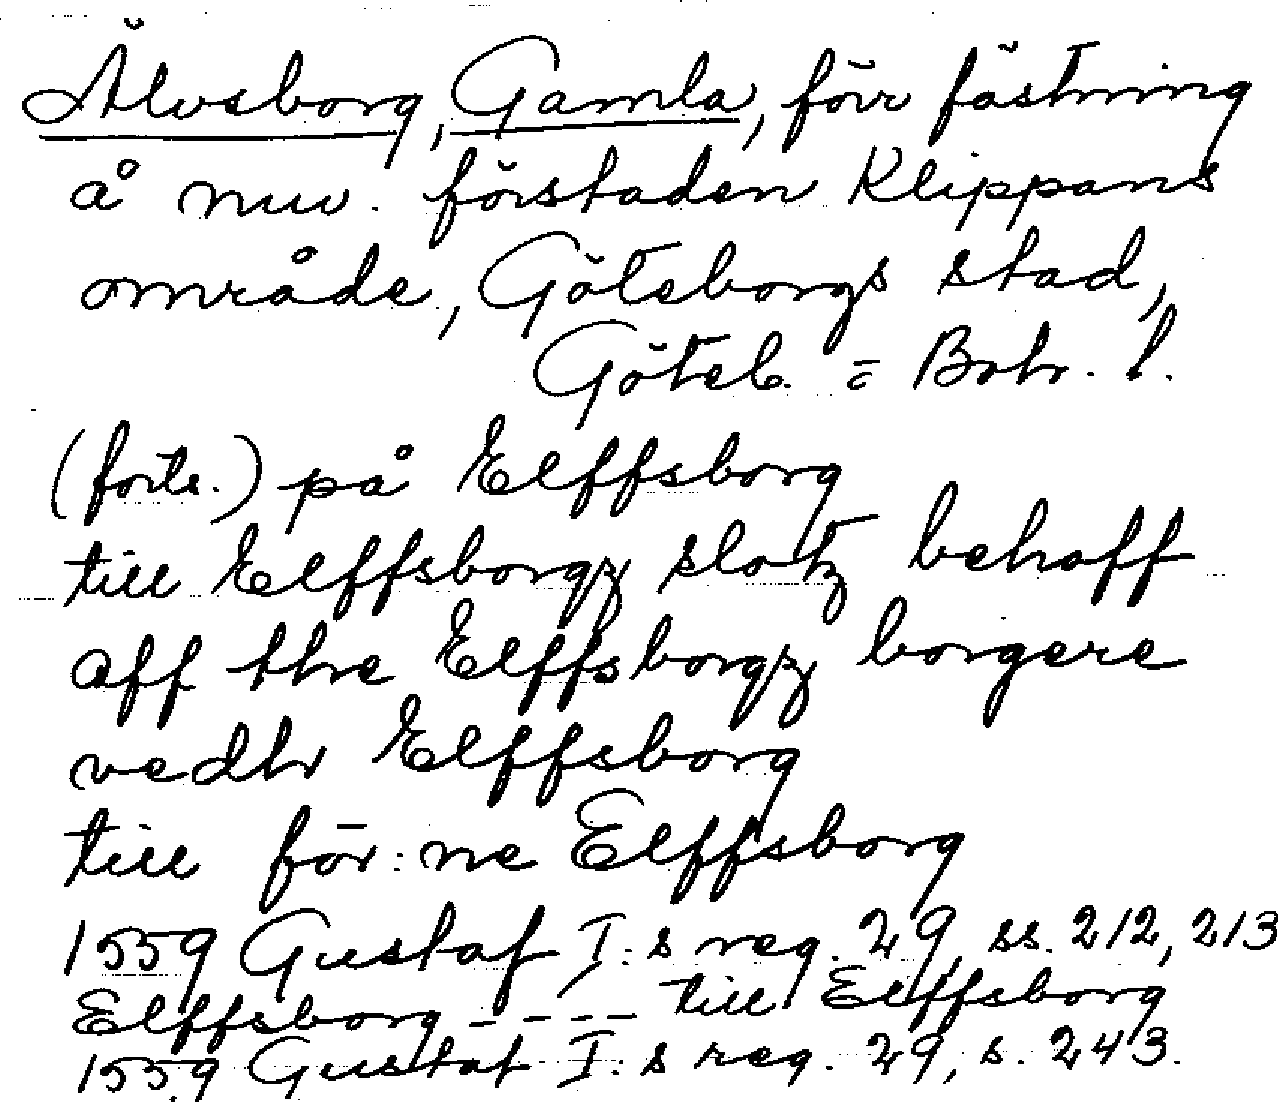 Älvsborg, Gamla, förr fästning
å nuv. förstaden Klippans
område, Göteborgs stad,
Göteb. o Boh. l.
(forts.) på Elffsborg
till Elffsborgz slotz behoff
aff the Elffsborgz borgere
vedh Elffsborg
till för:ne Elffsborg
1559 Gustaf I:s reg. 29, ss. 212, 213
Elffsborg - - - - till Elffsborg
1559 Gustaf I:s reg. 29, s. 243.